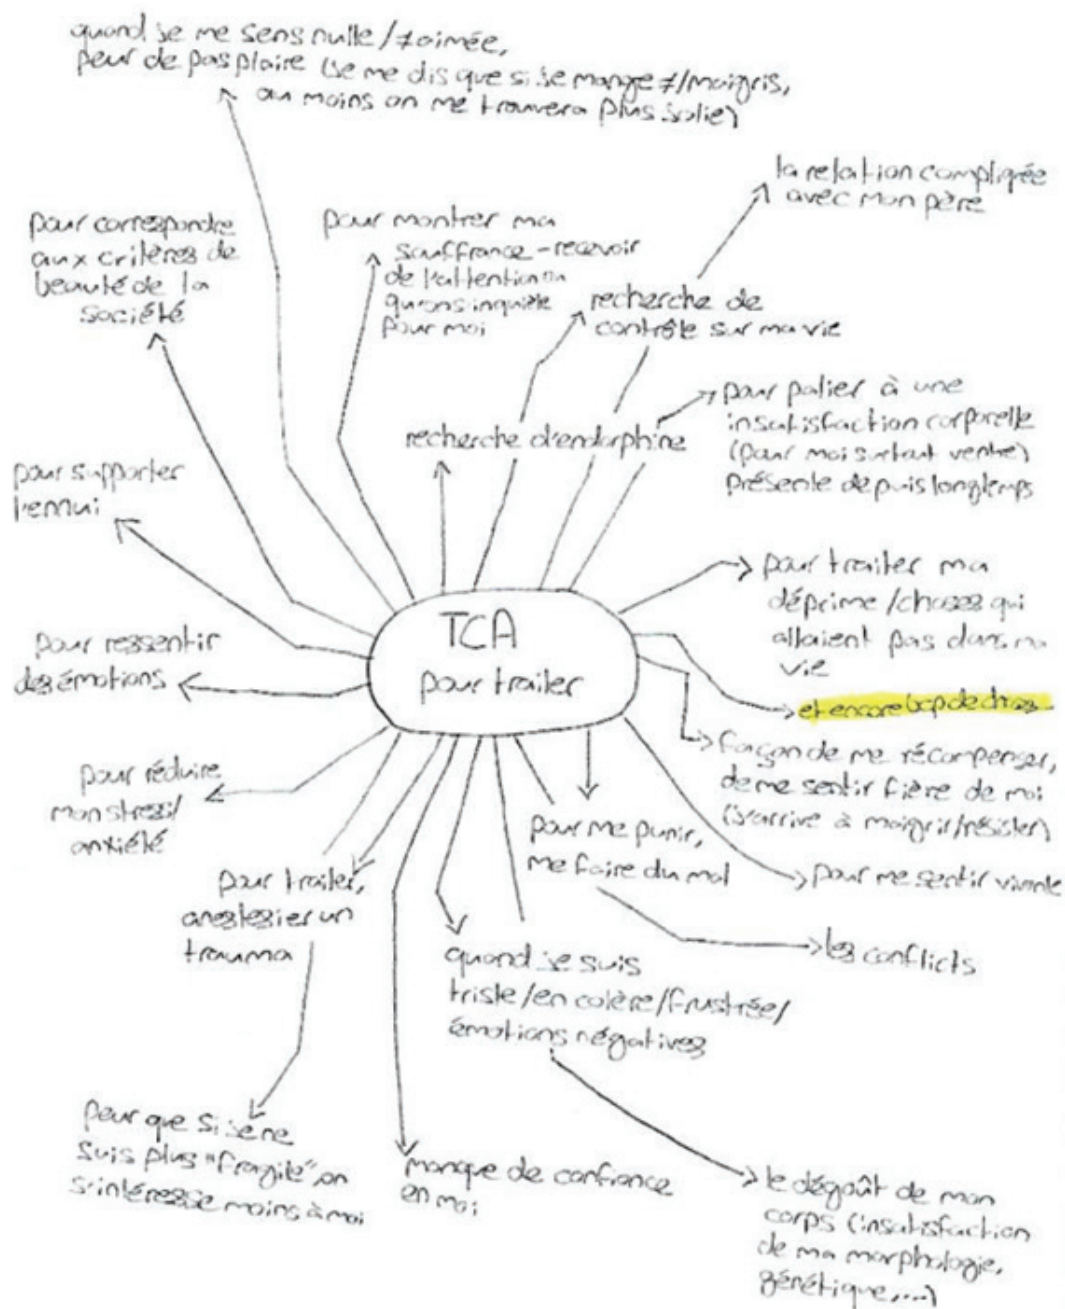 quand je me sens nulle/≠aimée,
peur de pas plaire (je me dis que si je mange ≠/maigris,
au moins on me trouvera plus jolie)
la relation compliquée
avec mon père
pour correspondre
aux critères de
beauté de la
société
pour montrer ma
souffrance - recevoir
de l'attention
qu'on s'inquiète
pour moi
recherche de
contrôle sur ma vie
pour palier à une
insatisfaction corporelle
(pour moi surtout ventre)
présente depuis longtemps
recherche d'endorphine
pour supporter
l'ennui
TCA
pour traiter
pour traiter ma
déprime/choses qui
allaient pas dans ma
vie
pour ressentir
des émotions
et encore bcp de choses
façon de me récompenser,
de me sentir fière de moi
(j'arrive à maigrir/résister)
pour réduire
mon stress/
anxiété
pour me punir,
me faire du mal
pour me sentir vivante
pour traiter,
anestesier un
trauma
quand je suis
triste/en colère/frustrée/
émotions négatives
les conflicts
peur que si je ne
suis plus "fragile", on
s'intéresse moins à moi
manque de confiance
en moi
le dégoût de mon
corps (insatisfaction
de ma morphologie,
génétique,...)